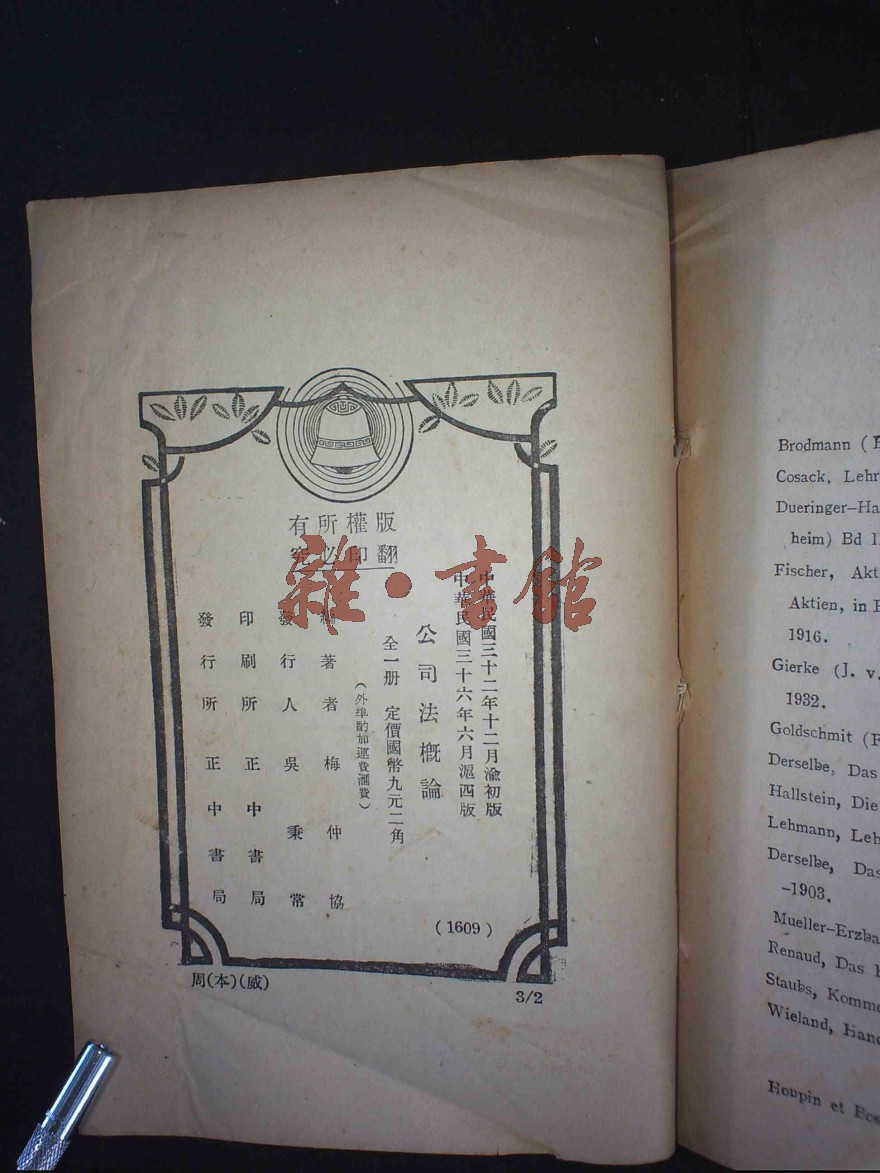 版權所有
翻印必究
中華民國三十二年十二月渝初版
中華民國三十六年六月滬四版
公司法概論
全一册 定價國幣九元二角
(外埠酌加運費滙費)
編著者 梅仲協
發行人 吳秉常
印刷所 正中書局
發行所 正中書局
(1609)
周(本)(威)
3/2
雜·書館
Brodmann
Cosack, Lehr
Dueringer-Ha
heim) Bd
Fischer, Akt
Aktien, in
1916.
Gierke (J. v.
1932.
Goldschmit (F
Derselbe, Das
Hallstein, Die
Lehmann, Leh
Derselbe, Das
-1903.
Mueller-Erzba
Renaud, Das
Staubs, Komme
Wieland, Hand
Houpin et Bos